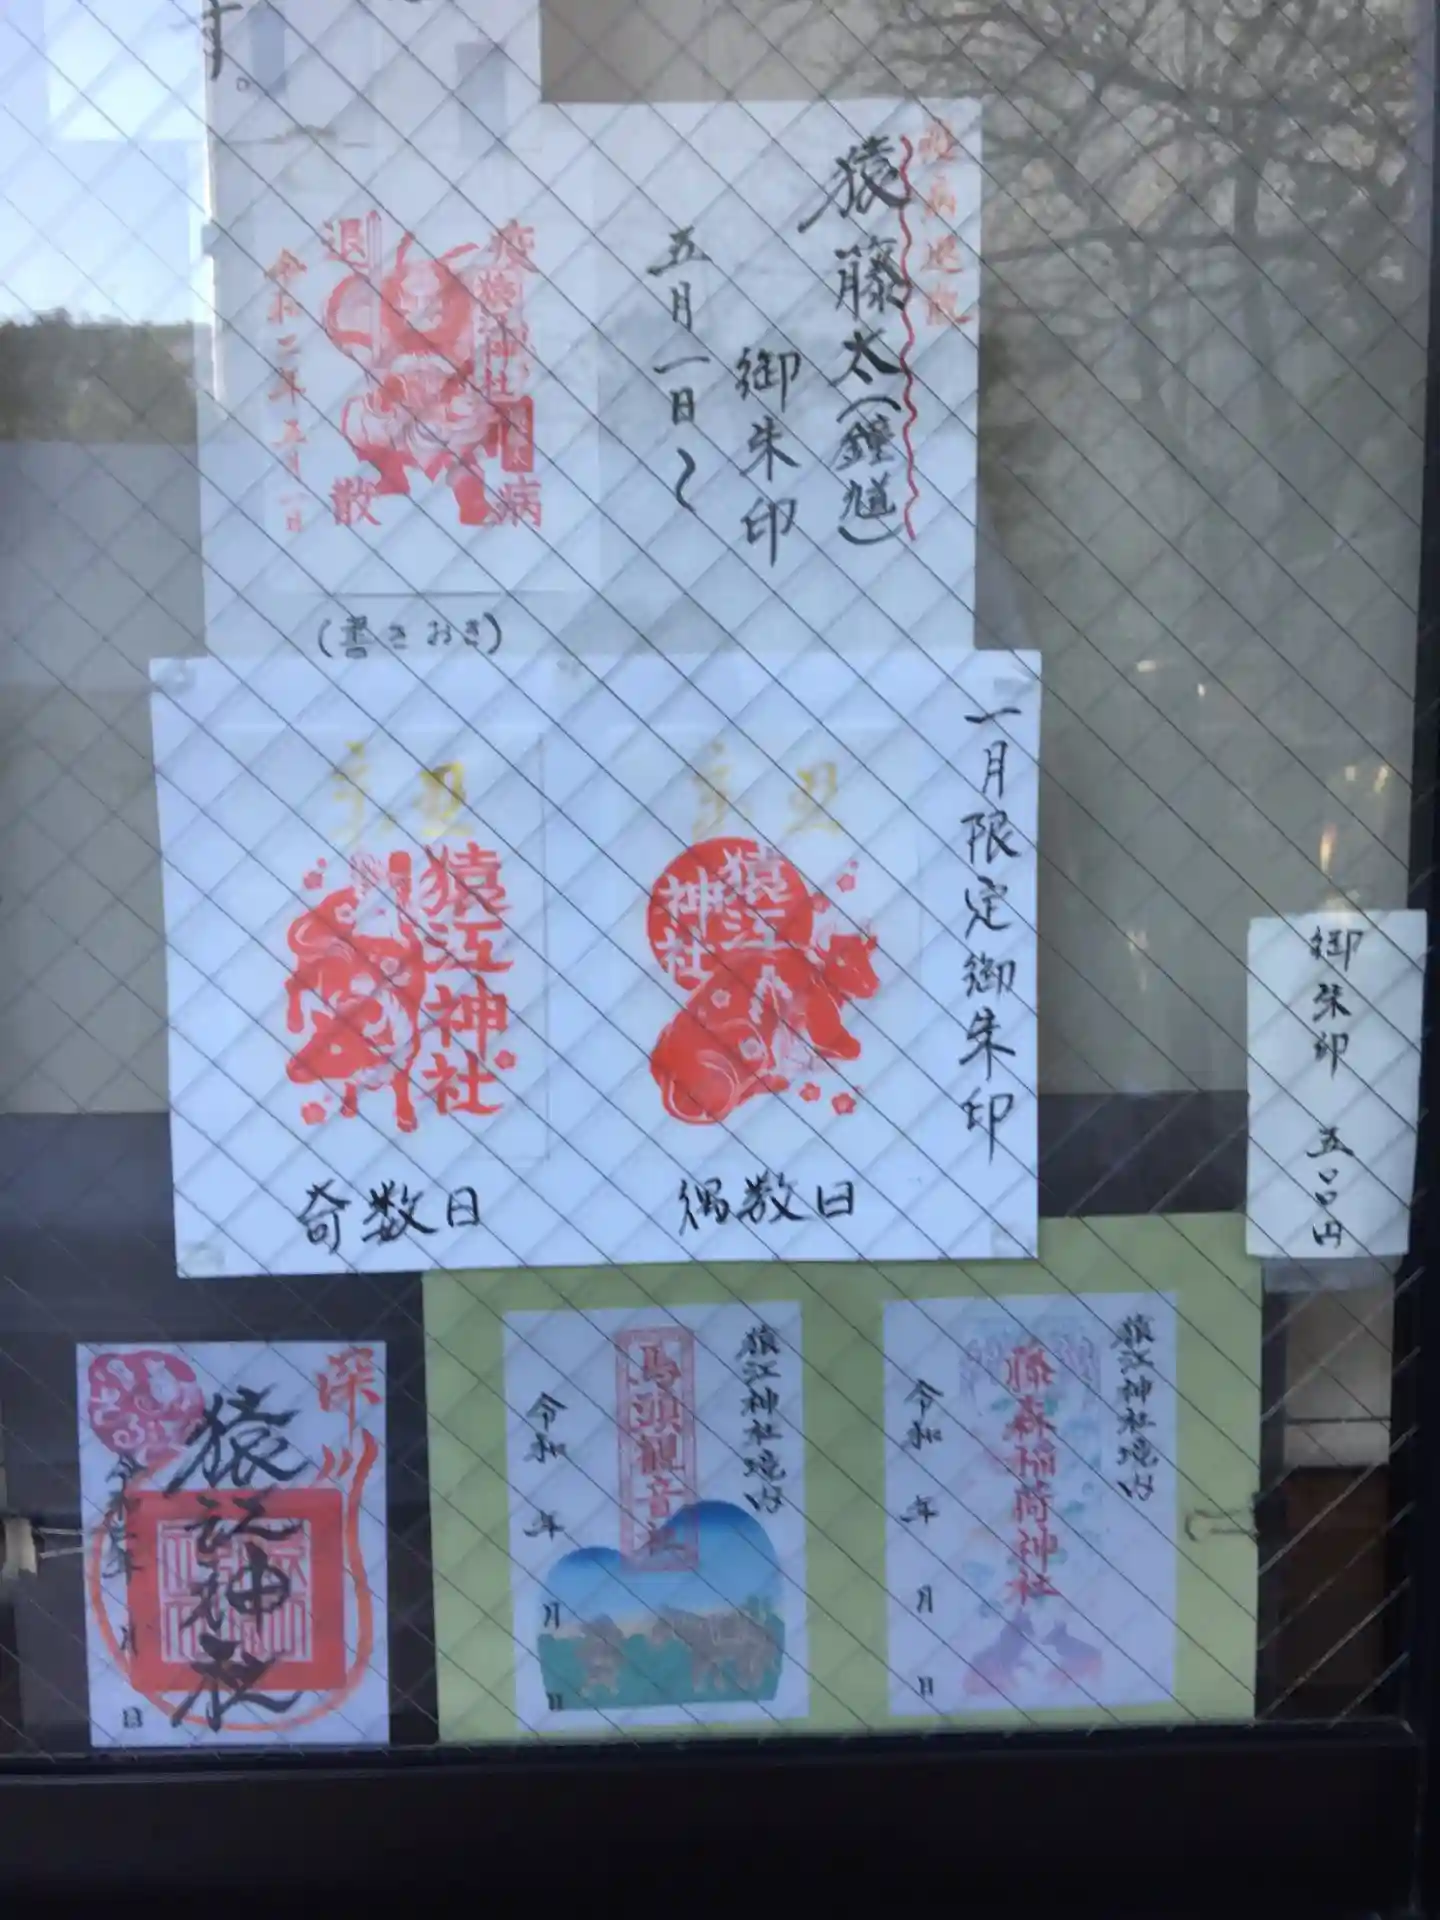 す。
疫病退散
猿藤太(鍾馗)
御朱印
五月一日〜
疫病
退散
猿江神社
令和二年五月一日
(書きおき)
一月限定御朱印
猿江
神社
偶数日
猿江神社
奇数日
御朱印 五〇〇円
猿江神社境内
藤森稲荷神社
令和 年 月 日
猿江神社境内
馬頭観音社
令和 年 月 日
深川
猿江神社
令和 年 月 日